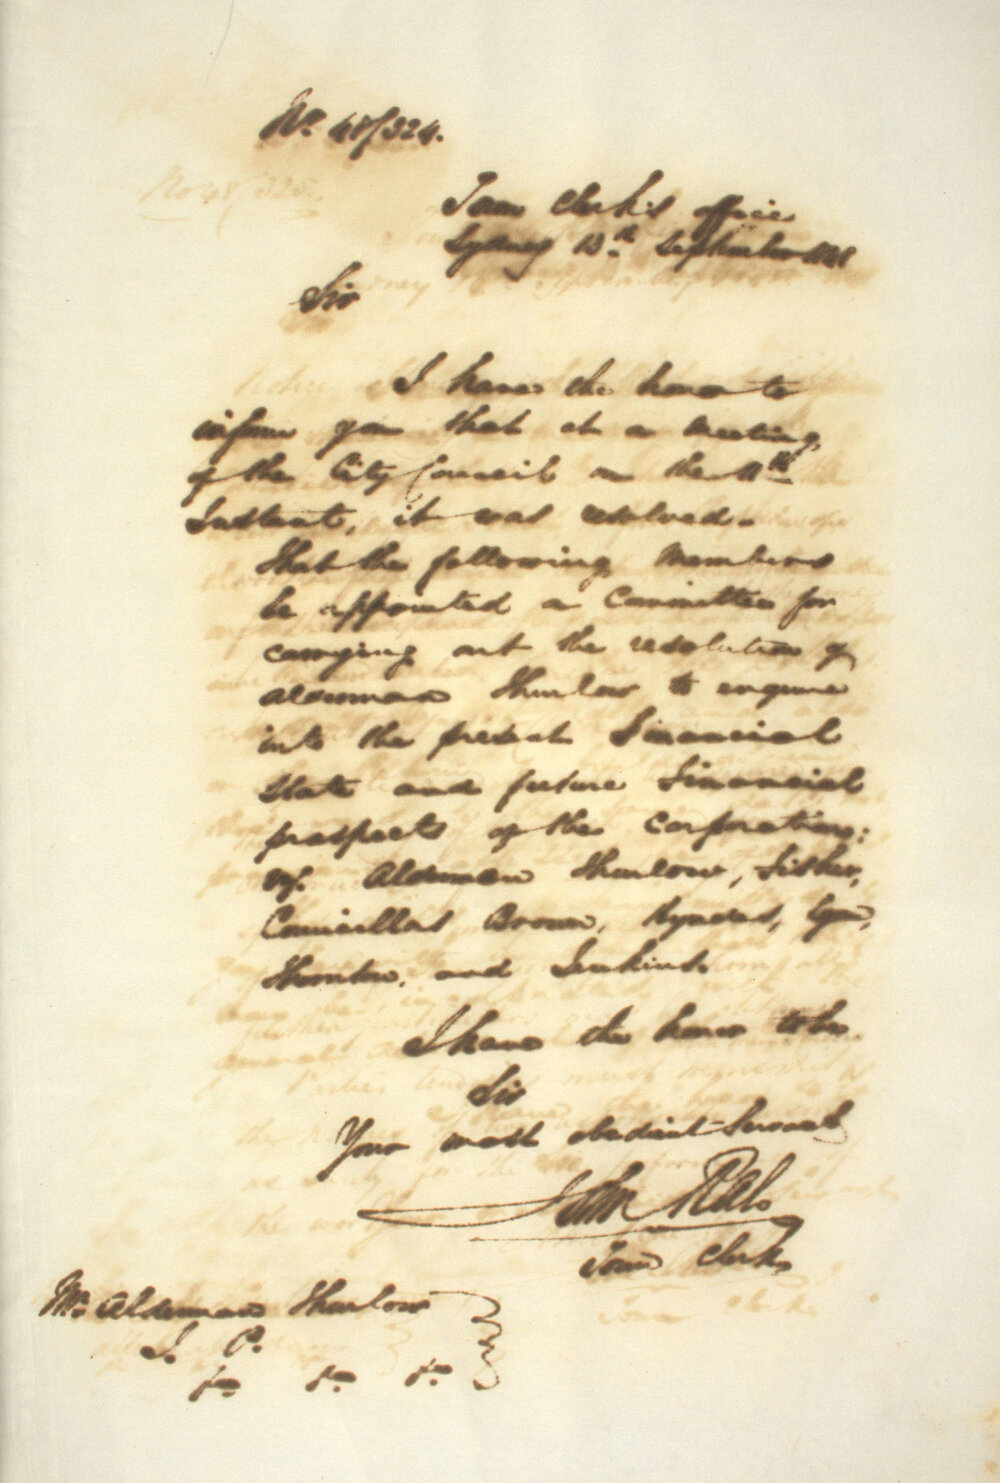 No. 48/324.
Town Clerk's Office
Sydney 13th September 1848
Sir
I have the honor to
inform you that at a meeting
of the City Council on the 11th
Instant, it was resolved.
That the following Members
be appointed a Committee for
carrying out the resolution of
Alderman Thurlow to enquire
into the present Financial
State and future Financial
prospects of the Corporation:
Alderman Thurlow, Fisher,
Councillors Brown,
Thornton, and Jenkins.
I have the honor to be
Sir
Your most obedient Servant
John Rae
Town Clerk
Mr. Alderman Thurlow
J. P.